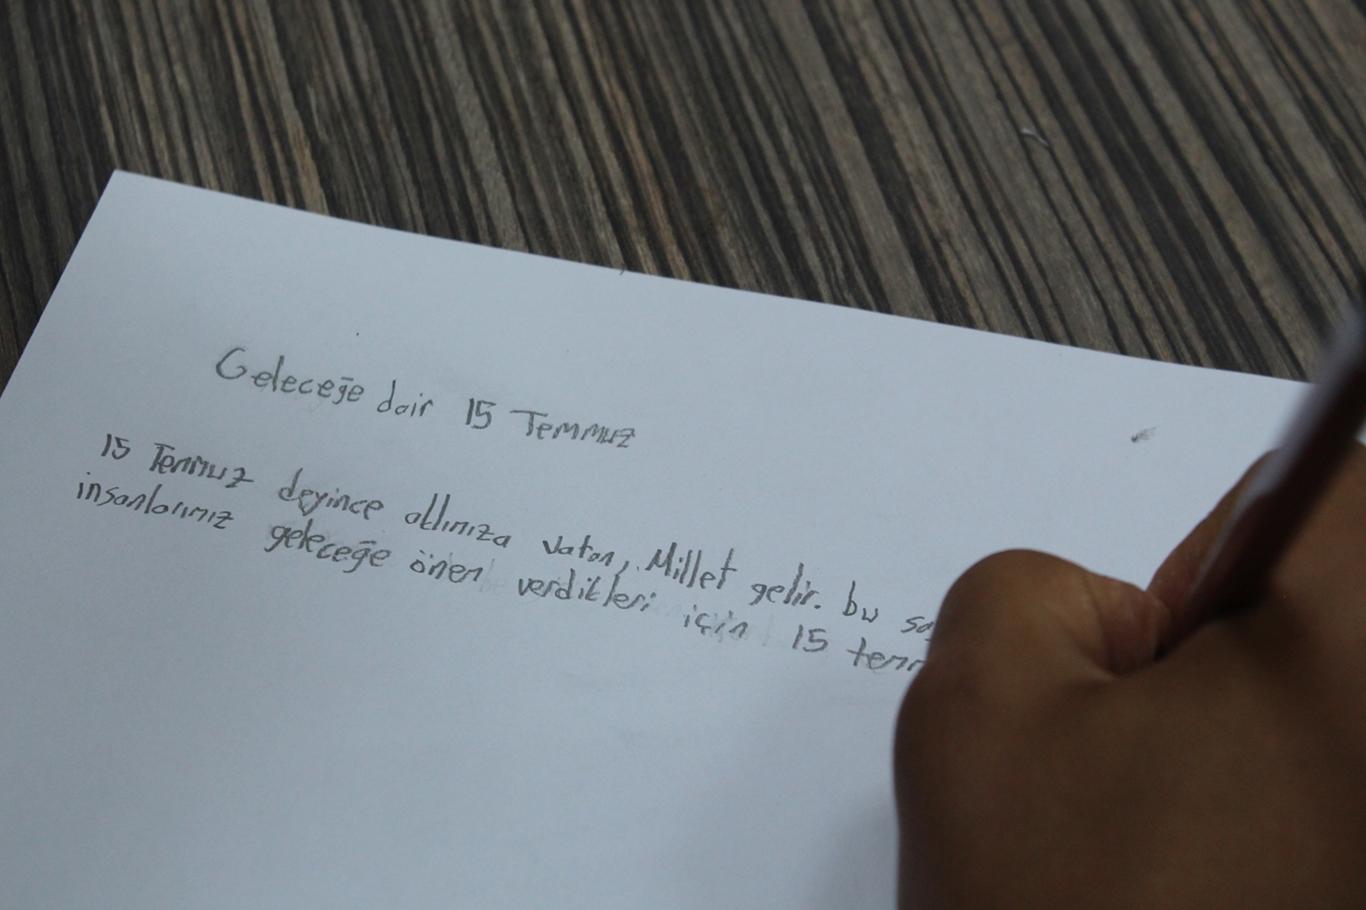 Geleceğe dair 15 Temmuz
15 Temmuz deyince aklınıza vatan, Millet gelir. bu
insanlarımız geleceğe önem verdikleri için 15